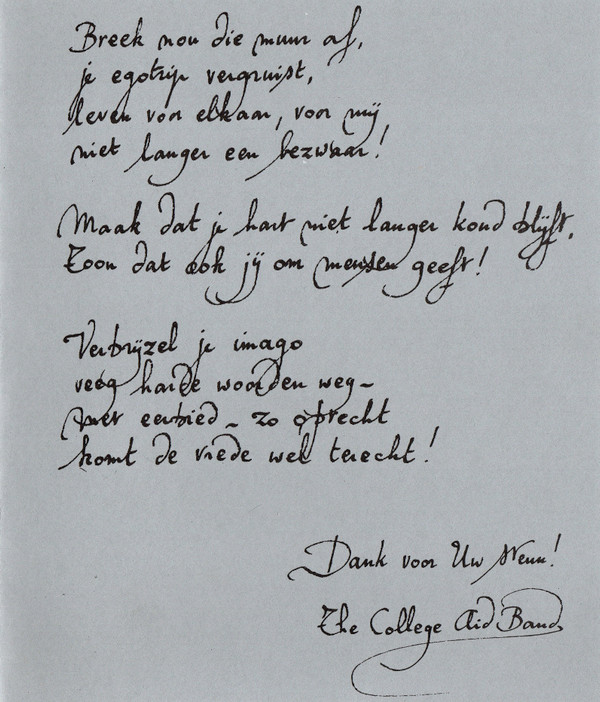 Breek nou die muur af,
je egotrip vergruist,
leven voor elkaar, voor mij,
niet langer een bezwaar!
Maak dat je hart niet langer koud blijft.
Toon dat ook jij om mensen geeft!
Verbrijzel je imago
veeg harde woorden weg -
met eerbied - zo oprecht
komt de vrede wel terecht!
Dank voor Uw steun!
The College Aid Band